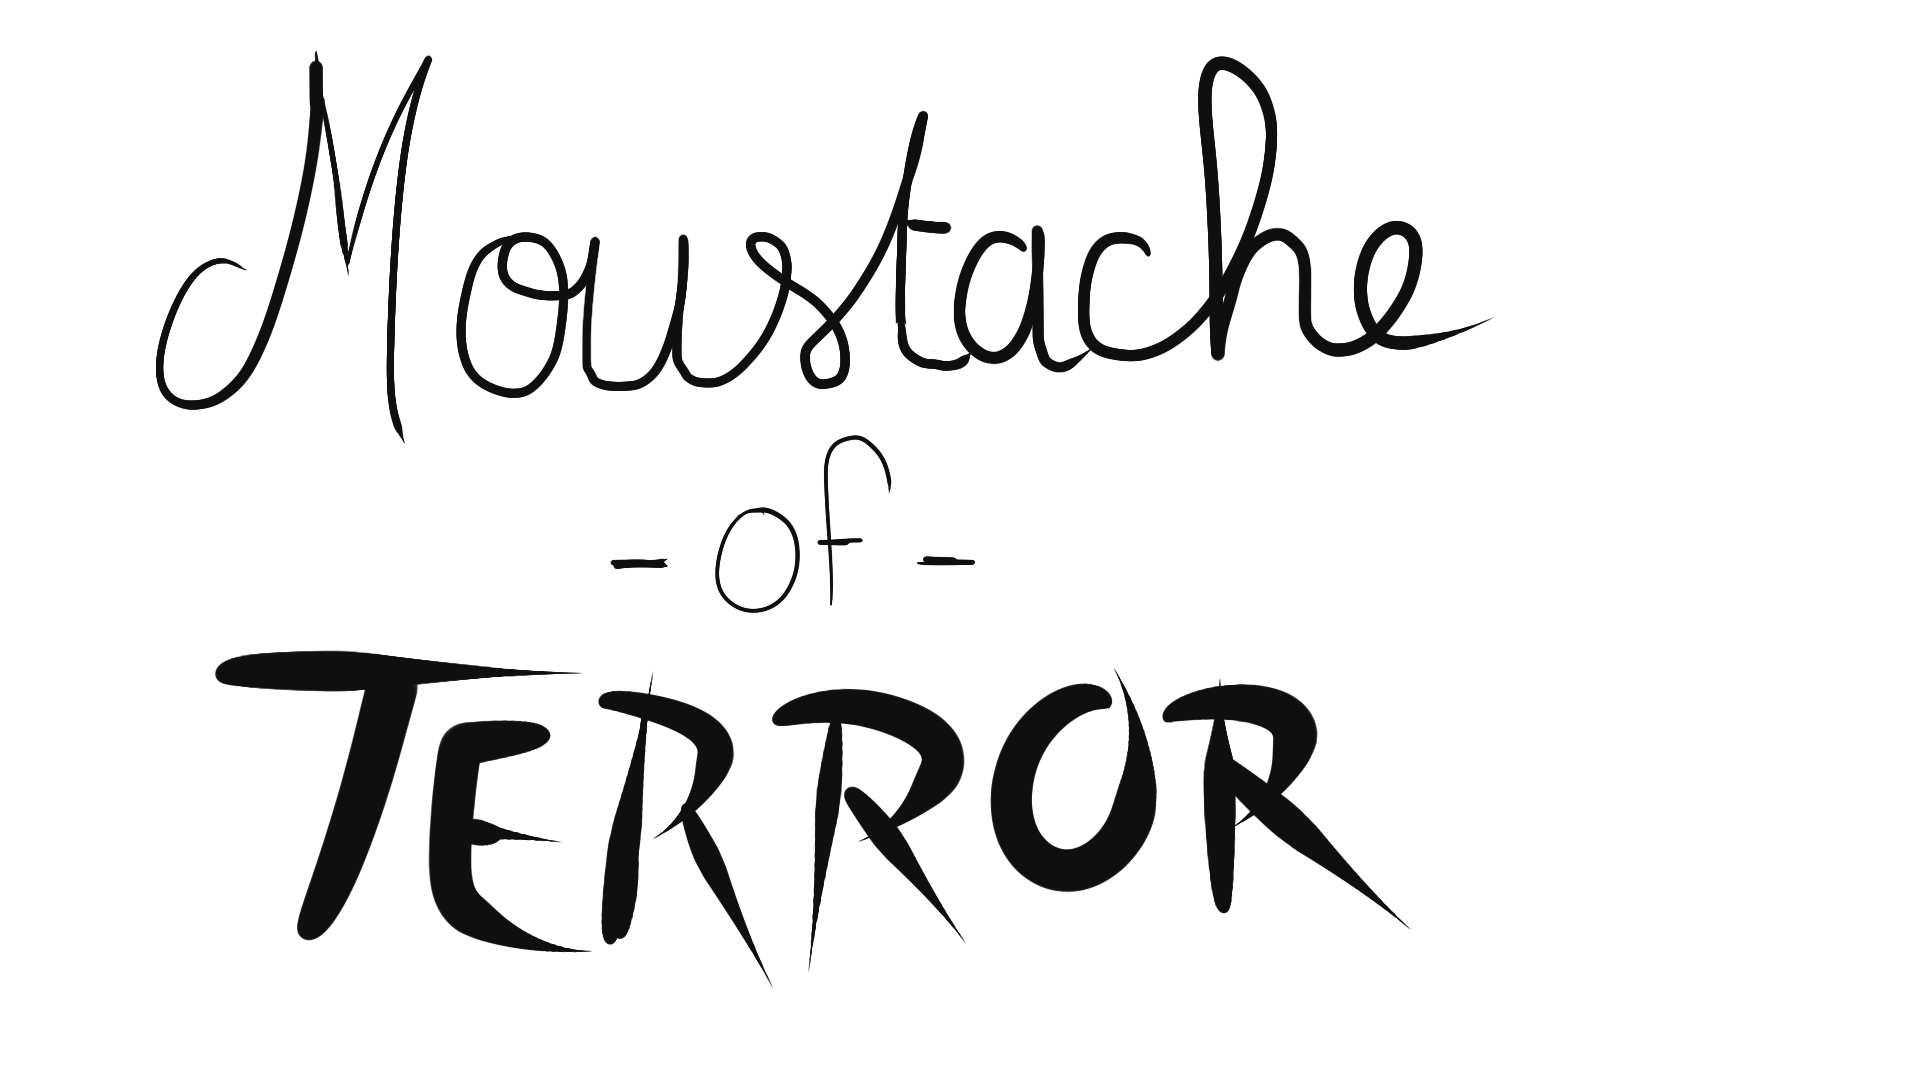 Moustache
- of -
TERROR